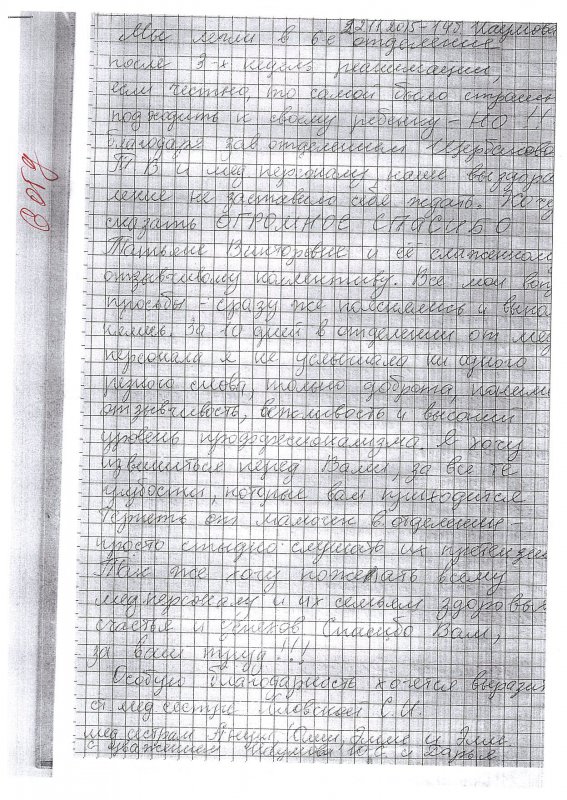 22.11.2015 - 14б. Наумова
Мы легли в 6е отделение
после 3-х недель реанимации,
если честно, то самой было страшн
подходить к своему ребенку - НО!!
благодаря зав отделением
Т В и мед персоналу, наше выздоров
ление не заставило себя ждать. Хочу
сказать ОГРОМНОЕ СПАСИБО
Татьяне Викторовне и её слаженном
отзывчивому коллективу. Все мои воп
просьбы - сразу же пояснялись и выпо
нялись. За 10 дней в отделении от мед
персонала я не услышала ни одного
резкого слова, только доброта, поним
отзывчивость, вежливость и высокий
уровень профессионализма. Я хочу
извиниться перед Вами, за все те
грубости, которые вам приходится
терпеть от мамочек в отделение -
просто стыдно слушать их претензии
Так же хочу пожелать всему
медперсоналу и их семьям здоровья
счастья и успехов Спасибо Вам,
за ваш труд!!!
Особую благодарность хочется выразит
ст мед сестре С.И.
мед сестрам Эмме и Элле.
с уважением Наумова Ю.С. и Дарья